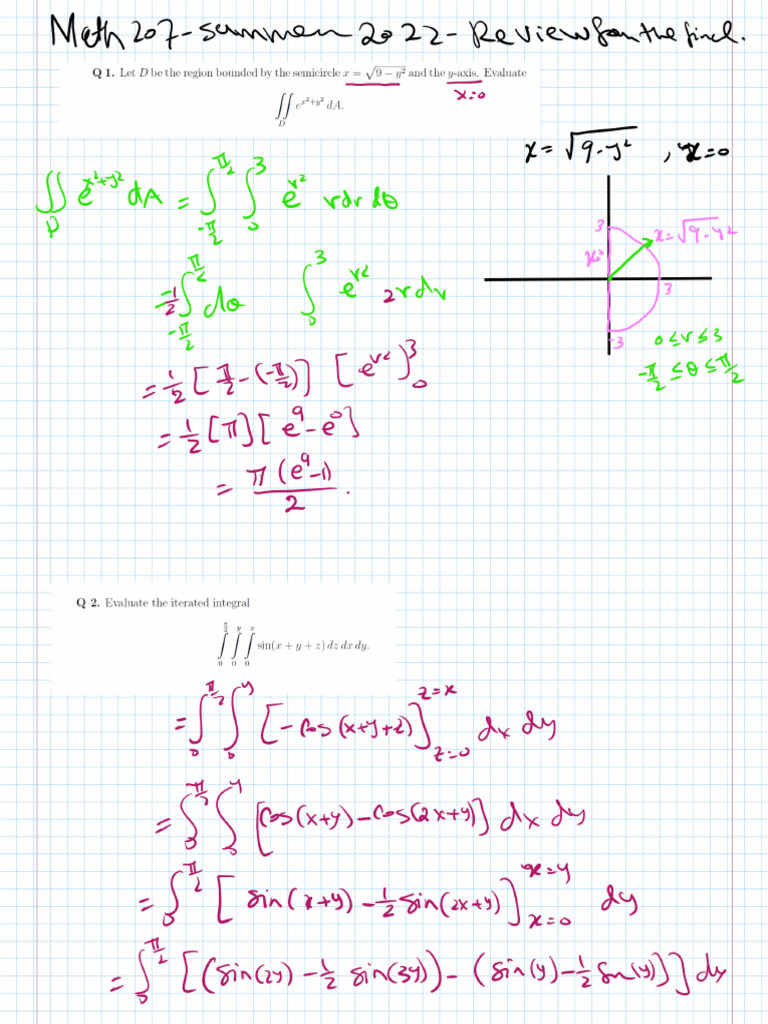 Math 207 - summer 2022 - Review for the final.
Q 1. Let D be the region bounded by the semicircle x = √(9 − y²) and the y-axis. Evaluate
x=0
∬_D e^(x²+y²) dA.
x = √(9-y²) , x=0
∬_D e^(x²+y²) dA = ∫_(-π/2)^(π/2) ∫_0^3 e^(r²) r dr dθ
3
x=0
x=√(9-y²)
3
-3
0 ≤ r ≤ 3
-π/2 ≤ θ ≤ π/2
= 1/2 ∫_(-π/2)^(π/2) dθ ∫_0^3 e^(r²) 2r dr
= 1/2 [π/2 - (-π/2)] [e^(r²)]_0^3
= 1/2 [π] [e^9 - e^0]
= π (e^9 - 1) / 2 .
Q 2. Evaluate the iterated integral
∫_0^(π/2) ∫_0^y ∫_0^x sin(x + y + z) dz dx dy.
= ∫_0^(π/2) ∫_0^y [-cos(x+y+z)]_(z=0)^(z=x) dx dy
= ∫_0^(π/2) ∫_0^y [cos(x+y) - cos(2x+y)] dx dy
= ∫_0^(π/2) [sin(x+y) - 1/2 sin(2x+y)]_(x=0)^(x=y) dy
= ∫_0^(π/2) [(sin(2y) - 1/2 sin(3y)) - (sin(y) - 1/2 sin(y))] dx